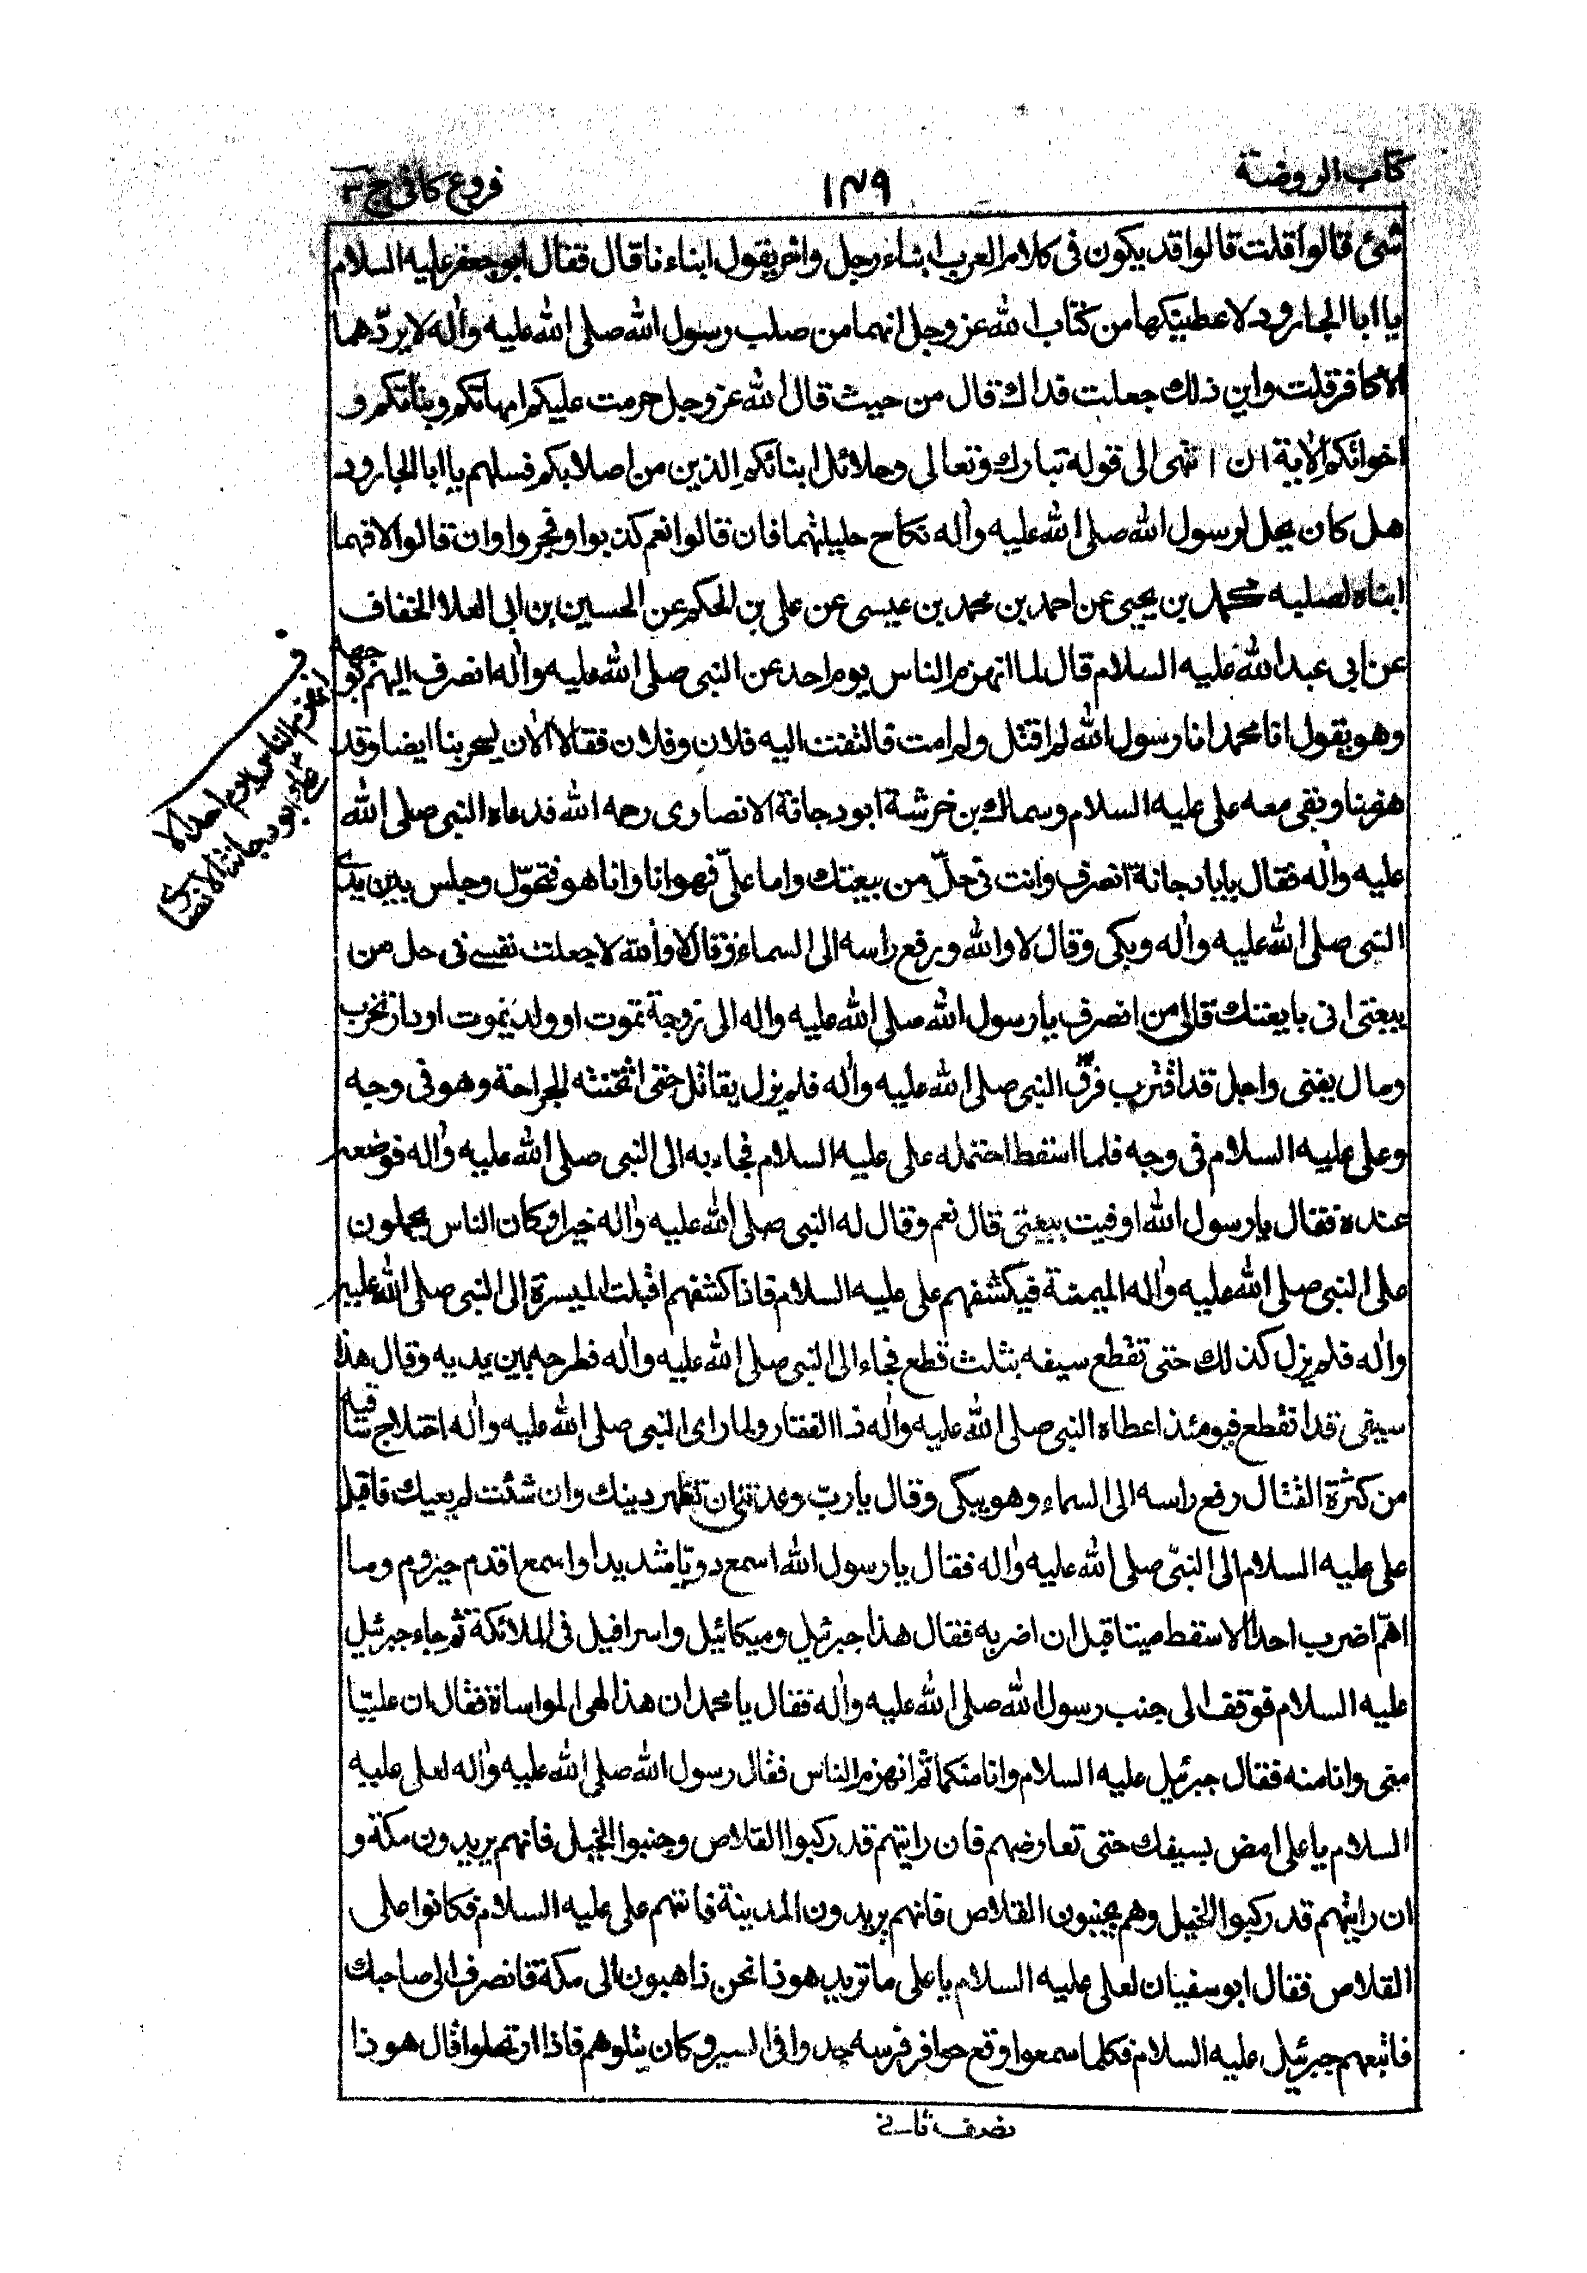 كتاب الروضة
١٤٩
فروع كافى ج ٣
شئ قالوا قلت قالوا قد يكون فى كلام العرب ابناء رجل واخر يقول ابناءنا قال فقال ابو جعفر عليه السلام
يا ابا الجارود لاعطيتكها من كتاب الله عز وجل انهما من صلب رسول الله صلى الله عليه واله لا يردّهما
الا كافر قلت واين ذلك جعلت فداك قال من حيث قال الله عز وجل حرمت عليكم امهاتكم وبناتكم و
اخواتكم الاية ان انتهى الى قوله تبارك وتعالى وحلائل ابنائكم الذين من اصلابكم فسلهم يا ابا الجارود
هل كان يحل لرسول الله صلى الله عليه واله نكاح حليلتهما فان قالوا نعم كذبوا وفجروا وان قالوا لا فهما
ابناه لصلبه محمد بن يحيى عن احمد بن محمد بن عيسى عن على بن الحكم عن الحسين بن ابى العلا الخفاف
عن ابى عبد الله عليه السلام قال لما انهزم الناس يوم احد عن النبى صلى الله عليه واله انصرف اليهم بوجهه
وهو يقول انا محمد انا رسول الله لم اقتل ولم امت فالتفت اليه فلان وفلان فقالا الان يسخر بنا ايضا وقد
هزمنا وبقى معه على عليه السلام وسماك بن خرشة ابو دجانة الانصارى رحمه الله فدعاه النبى صلى الله
عليه واله فقال يابا دجانة انصرف وانت فى حلّ من بيعتك واما علىّ فهو انا وانا هو فتحوّل وجلس بين يدى
النبى صلى الله عليه واله وبكى وقال لا والله ورفع راسه الى السماء وقال لا والله لا جعلت نفسى فى حل من
بيعتى انى بايعتك فالى من انصرف يا رسول الله صلى الله عليه واله الى زوجة تموت او ولد يموت او دار تخرب
ومال يفنى واجل قد اقترب فرقّ النبى صلى الله عليه واله فلم يزل يقاتل حتى اثخنته الجراحة وهو فى وجه
وعلى عليه السلام فى وجه فلما اسقط احتمله على عليه السلام فجاء به الى النبى صلى الله عليه واله فوضعه
عنده فقال يا رسول الله اوفيت ببيعتى قال نعم وقال له النبى صلى الله عليه واله خيرا وكان الناس يحملون
على النبى صلى الله عليه واله الميمنة فيكشفهم على عليه السلام فاذا كشفهم اقبلت الميسرة الى النبى صلى الله عليه
واله فلم يزل كذلك حتى تقطع سيفه بثلث قطع فجاء الى النبى صلى الله عليه واله فطرحه بين يديه وقال هذا
سيفى قد انقطع فيومئذ اعطاه النبى صلى الله عليه واله ذا الفقار ولما راى النبى صلى الله عليه واله اختلاج ساقيه
من كثرة القتال رفع راسه الى السماء وهو يبكى وقال يا ربّ وعدتنى ان تظهر دينك وان شئت لم يعيك فاقبل
على عليه السلام الى النبىّ صلى الله عليه واله فقال يا رسول الله اسمع دويّا شديدا واسمع اقدم حيزوم وما
اهمّ اضرب احدا الا سقط ميتا قبل ان اضربه فقال هذا جبرئيل وميكائيل واسرافيل فى الملائكة ثم جاء جبرئيل
عليه السلام فوقف الى جنب رسول الله صلى الله عليه واله فقال يا محمد ان هذا لهى المواساة فقال ان عليّا
منى وانا منه فقال جبرئيل عليه السلام وانا منكما ثم انهزم الناس فقال رسول الله صلى الله عليه واله لعلى عليه
السلام يا على امض بسيفك حتى تعارضهم فان رايتهم قد ركبوا القلاص وجنبوا الخيل فانهم يريدون مكة و
ان رايتهم قد ركبوا الخيل وهم يجنبون القلاص فانهم يريدون المدينة فاتهم على عليه السلام فكانوا على
القلاص فقال ابو سفيان لعلى عليه السلام يا على ما تريد هو ذا نحن ذاهبون الى مكة فانصرف الى صاحبك
فاتبعهم جبرئيل عليه السلام فكلما سمعوا وقع حوافر فرسه جدوا فى السير وكان يتلوهم فاذا ارتحلوا قال هو ذا
انهزم الناس يوم احد الا
على وابو دجانة الانصارى